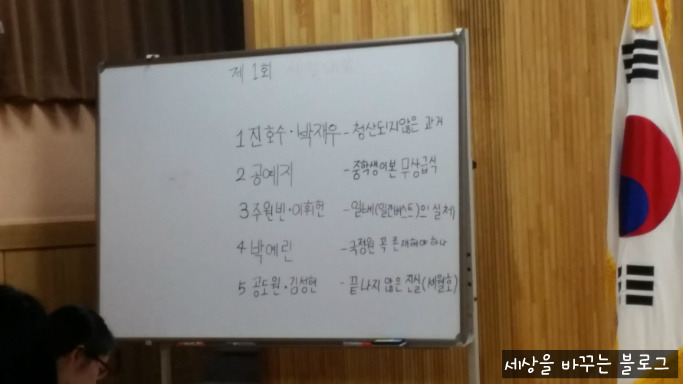 제 1회
1 진호수·박재우 - 청산되지않은 과거
2 공예지 - 중학생이본 무상급식
3 주원빈·이휘헌 - 일베(일간베스트)의 실체
4 박예린 - 국정원 꼭 존재해야하나
5 공도원·김성현 - 끝나지 않은 진실(세월호)
세상을 바꾸는 블로그